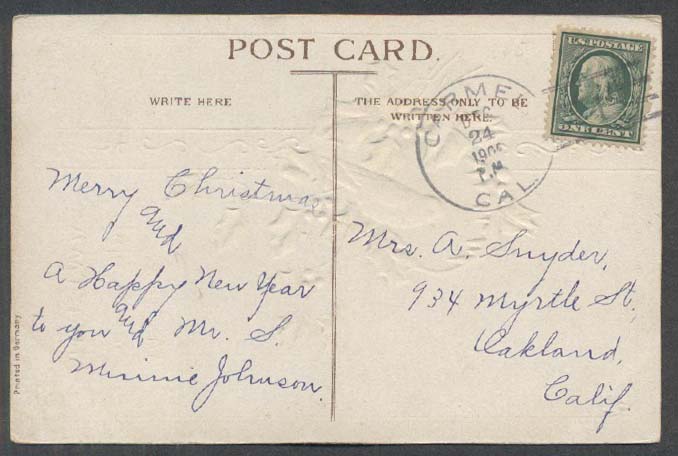 POST CARD.
WRITE HERE
THE ADDRESS ONLY TO BE
WRITTEN HERE.
U.S. POSTAGE
ONE CENT
CARMEL
DEC
24
P.M.
CAL.
Merry Christmas
and
A Happy New Year
to you and Mr. S.
Minnie Johnson.
Mrs. A. Snyder,
934 Myrtle St,
Oakland,
Calif.
Printed in Germany